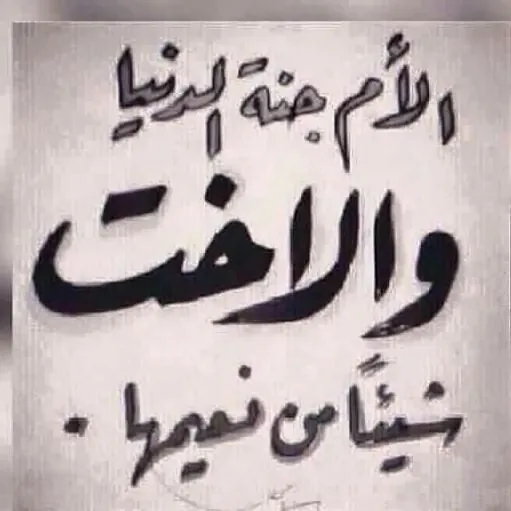 الأم جنة الدنيا
والاخت
شيئًا من نعيمها .